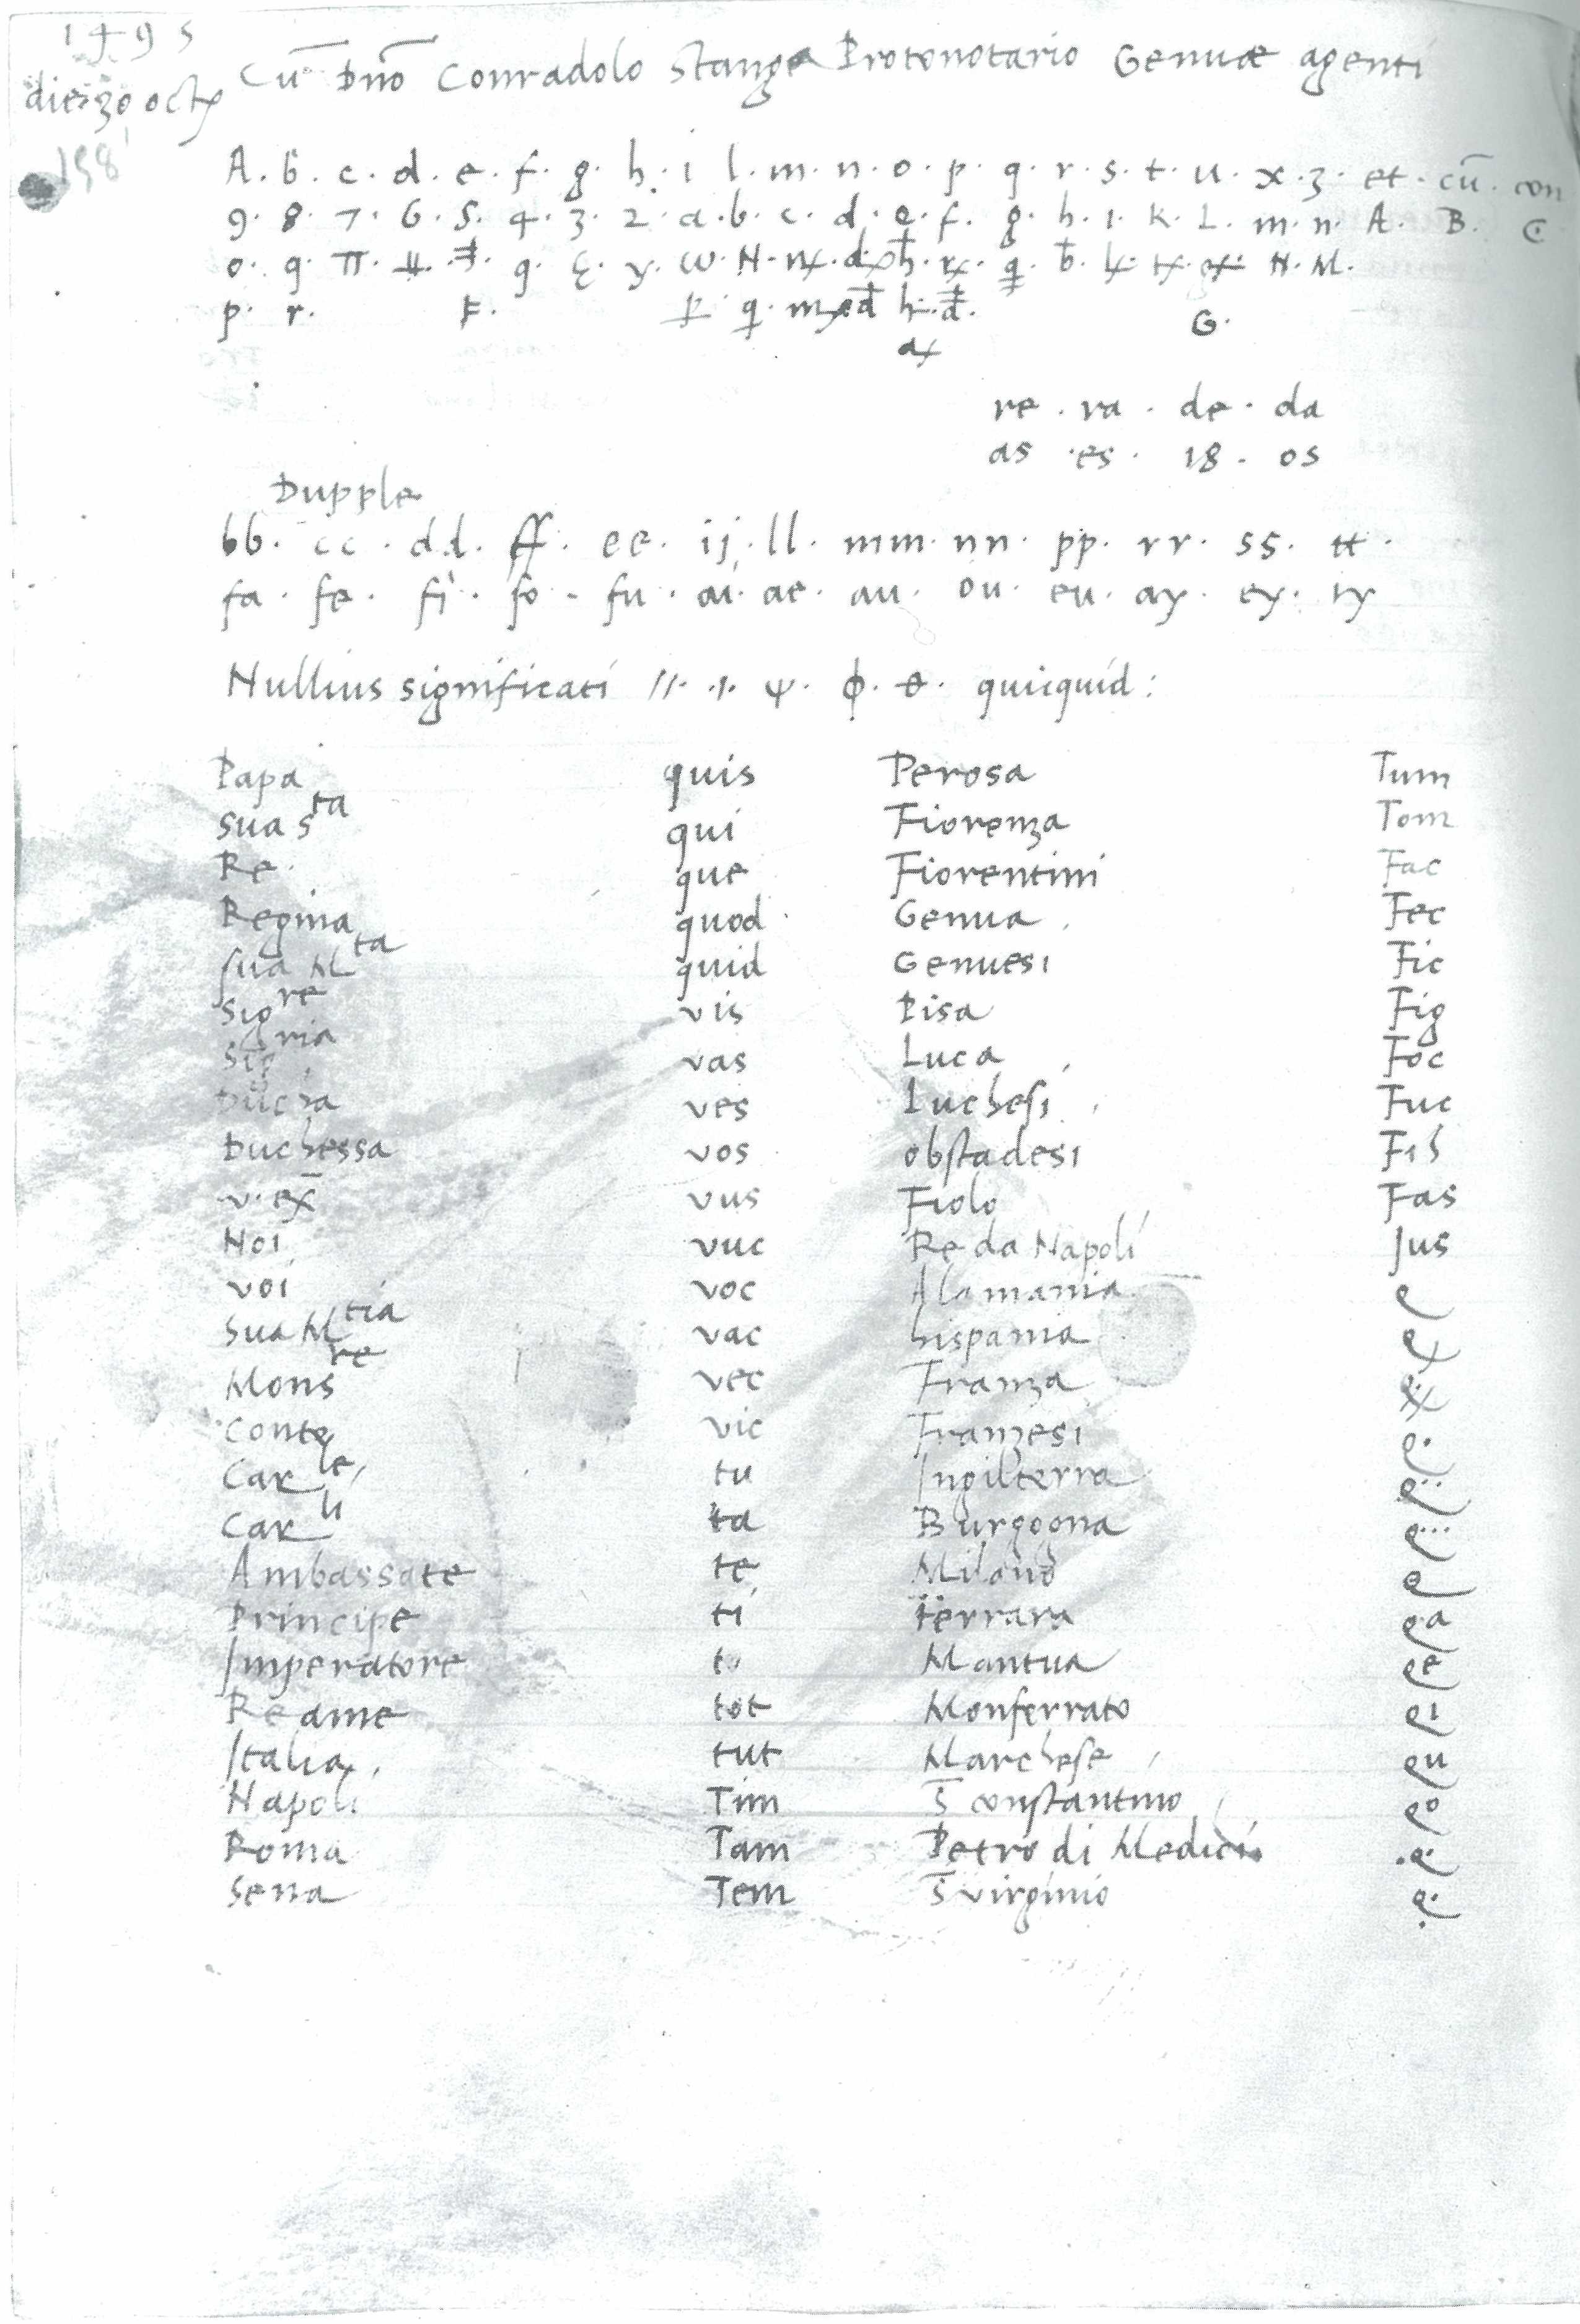 1495
die 30 oct
198
Cū Dno Conradolo Stanga Protonotario Genuæ agenti
A. b. c. d. e. f. g. h. i l. m. n. o. p. q. r. s. t. u. x. z. et. cū. con
9. 8. 7. 6. 5. 4. 3. 2. a. b. c. d. e. f. g. h. i. K. L. m. n. A. B. C
o. q. π.
p. r. F. G.
re. ra. de. da
as. es. 18. os
Dupple
bb. cc. dd. ff. ee. ij. ll. mm. nn. pp. rr. ss. tt.
fa. fe. fi. fo. fu. ai. ae. au. ou. eu. ay. ey. iy
Nullius significati //. ·/·. ψ. ϕ. θ. quicquid:
Papa quis Perosa Tum
Sua Sta qui Fiorenza Tom
Re que Fiorentini Fac
Regina quod Genua Fec
Sua Mta quid Genuesi Fic
Sigre vis Pisa Fig
Sigria vas Luca Foc
Duca ves Luchesi Fuc
Duchessa vos obstadesi Fih
v. ex̄ vus Fiolo Fas
Noi vuc Re da Napoli Jus
voi voc Alamania
Sua Mtia vac hispania
Monsre vec Franza
Conte vic Franzesi
Carle tu Ingilterra
Carli ta Burgogna
Ambassate te Milano
Principe ti Ferrara ea
Imperatore to Mantua ee
Reame tot Monferrato ei
Italia tut Marchese eu
Napoli Tim S̄ constantino eo
Roma Tam Petro di Medicis
Sena Tem S̄ virginio